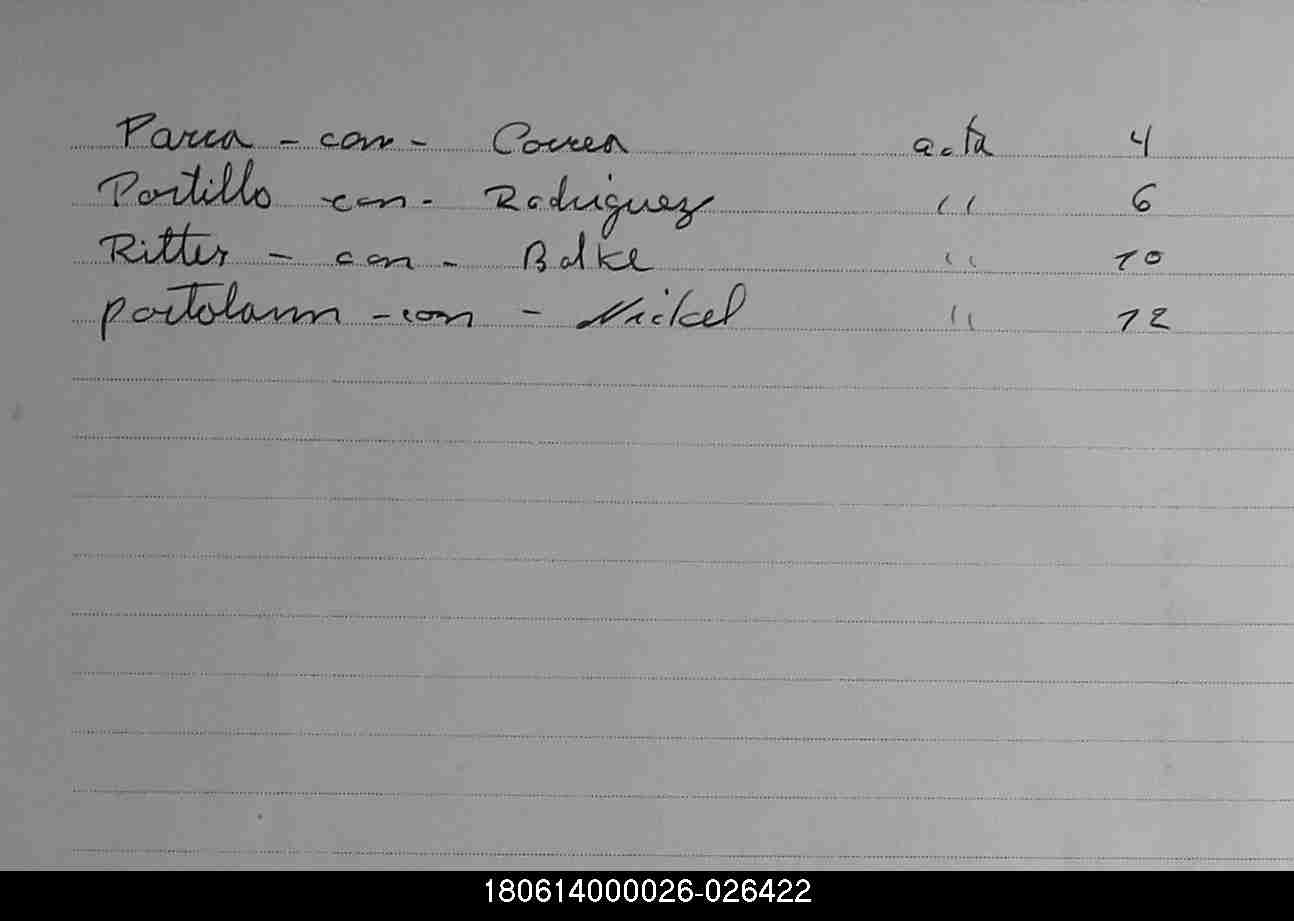 Parra - con - Correa acta 4
Portillo con - Rodriguez " 6
Ritter - con - Balke " 10
portolann - con - Nickel " 12
180614000026-026422